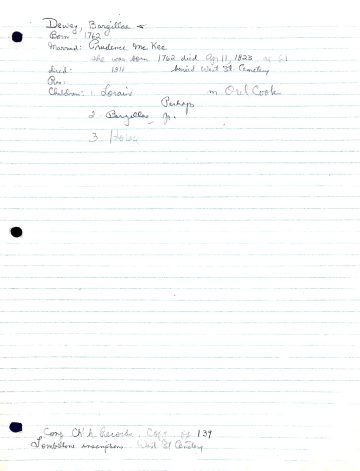 Dewey, Bargillae
Born 1762
Married: Prudence McKee
she was born 1762 died Apr 11, 1823 ag 61
died: 1811 buried West St. Cemetery
Res:
Children: 1. Loraine m Orel Cook
Perhaps
2. Bargillae, Jr.
3.
Cong Ch'h Records, Copy pg 139
Tombstone inscriptions. West St Cemetery